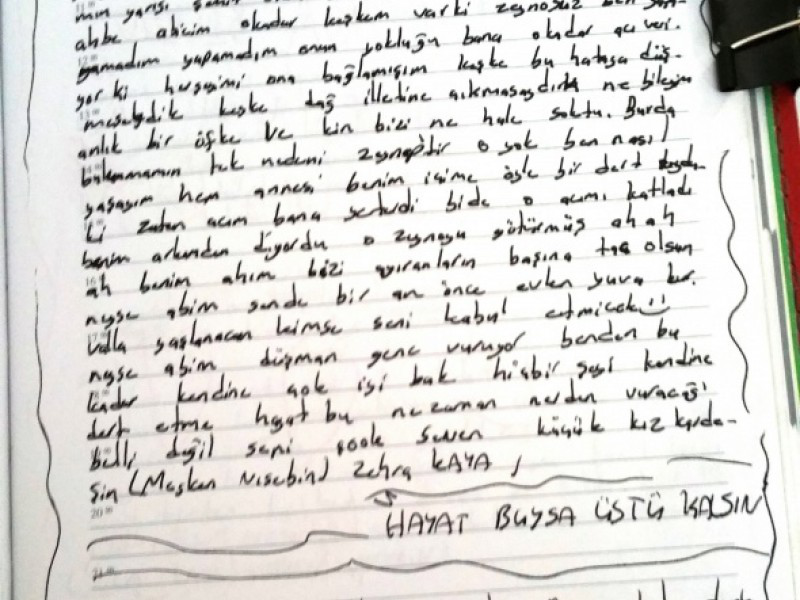 mın yarısı
ahbe abicim okadar keşkem varki zeynosuz ben
yamadım yapamadım onun yokluğu bana okadar acı veri.
yor ki herşeyimi ona bağlamışım keşke bu hataya düş-
meseydik keşke dağ illetine çıkmasaydık ne bileyim
anlık bir öfke ve kin bizi ne hale soktu. Burda
bulunmamın tek nedeni zeyneptir o yok ben nasıl
yaşayım hem annesi benim içime öyle bir dert
ki zaten acım bana yeterdi bide o acımı katladı
benim arkından diyordu o zeynoyu götürmüş ah ah
ah benim ahım bizi ayıranların başına taş olsun
neyse abim sende bir an önce evlen yuva kur.
Valla yaşlanacan kimse seni kabul etmicek
neyse abim düşman gene vuruyor benden bu
kadar kendine çok iyi bak hiçbir şeyi kendine
dert etme hayat bu ne zaman nerden vuracağı
belli değil seni çook seven küçük kız karde-
şin (Meşken Nisebin) Zehra KAYA
HAYAT BUYSA ÜSTÜ KALSIN